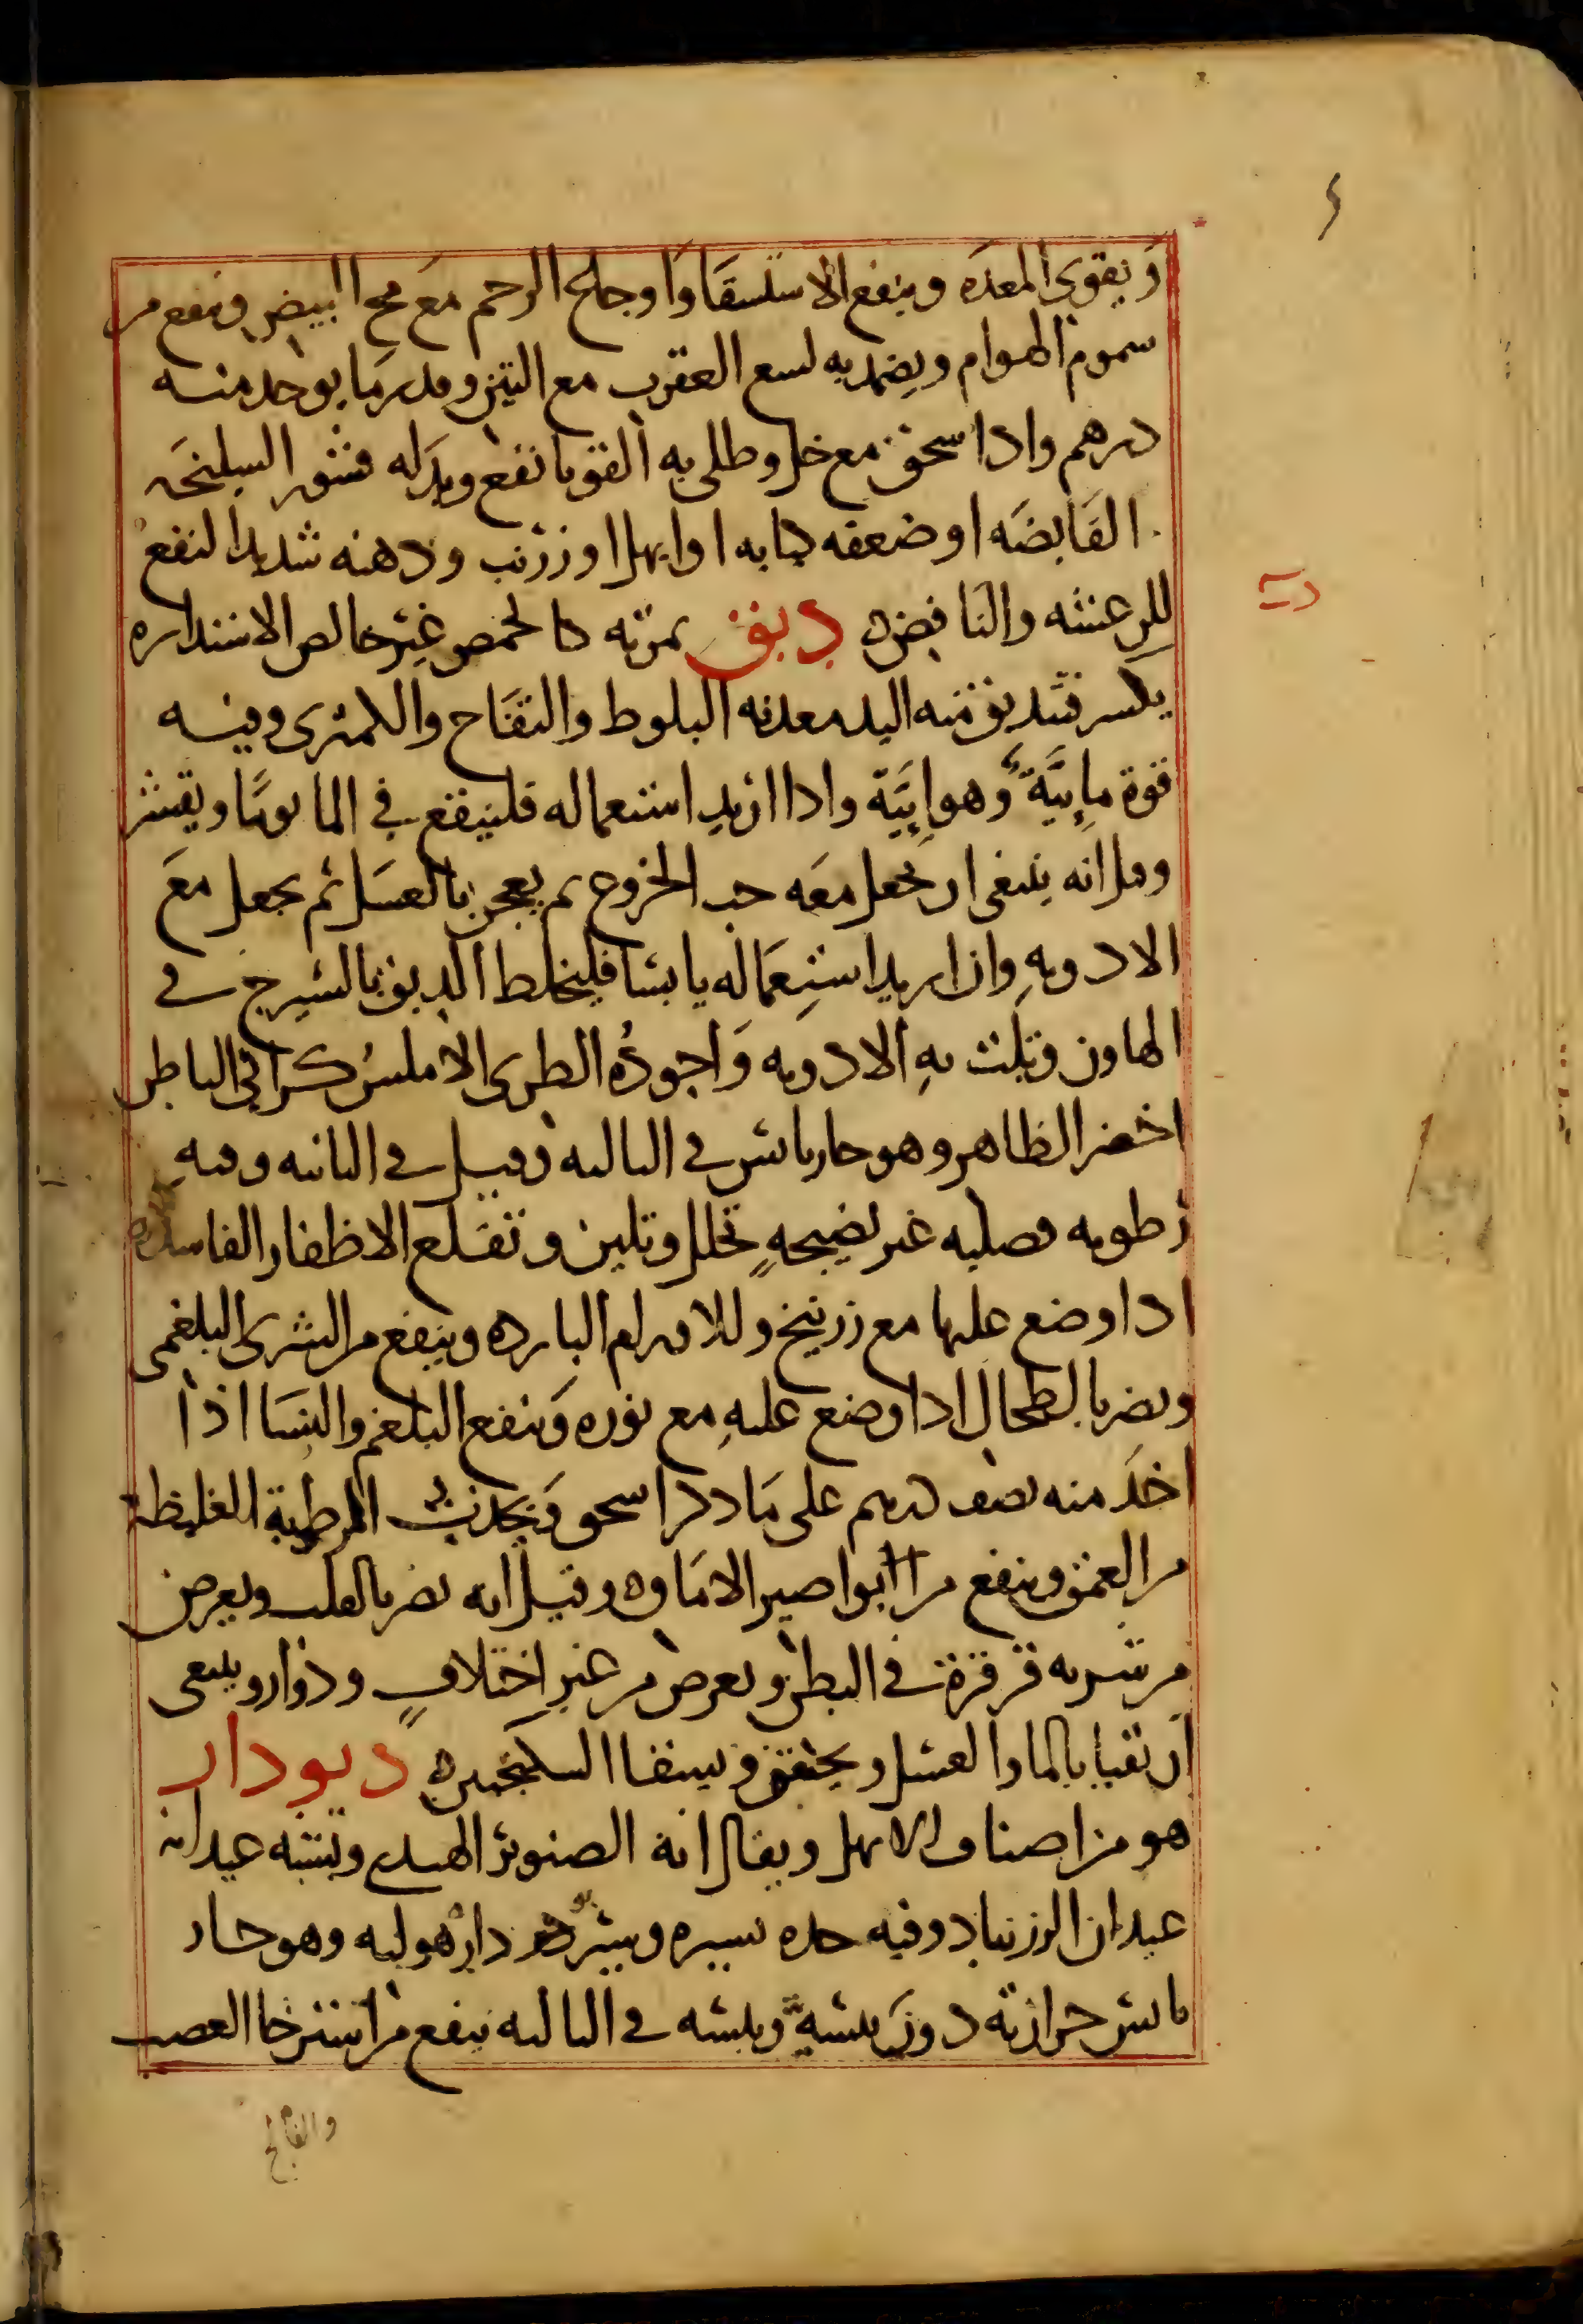 ويقوي المعده وينفع الاستسقا واوجاع الرحم مع مح البيض وينفع من
سموم الهوام ويضمد به لسع العقرب مع التين وقدر ما يوخد منه
درهم وادا سحق مع خل وطلي به القوبا نفع وبدله قشور السليخه
القابضه او ضعفه كبابه او ابهل او زرنب ودهنه شديد النفع
للرعشه والنافض دبق ثمرته كالحمص غير خالص الاستداره
يكسر فتدبق منه اليد معدنه البلوط والتفاح والكمثرى وفيه
قوة مايية وهوايية وادا اريد استعماله فلينقع في الما يوما ويقشر
وقيل انه ينبغي ان يجعل معه حب الخروع ثم يعجن بالعسل ثم يجعل مع
الادويه وان اريد استعماله يابسا فليخلط الدبق بالشيرج في
الهاون وتلت به الادويه واجوده الطري الاملس كراثي الباطن
اخضر الظاهر وهو حار يابس في الثالثه وقيل في الثانيه وفيه
رطوبه فضليه غير نضيجه تحلل وتلين وتقلع الاظفار الفاسده
ادا وضع عليها مع زرنيخ وللاورام البارده وينفع من الشرى البلغمي
ويضر بالطحال ادا وضع عليه مع نوره وينفع البلغم والنسا اذا
اخد منه نصف درهم على ما ذكر اسحق ويجذب الرطوبة الغليظة
من العمق وينفع من ابواصير الاماق وقيل انه يضر بالقلب ويعرض
من شربه قرقرة في البطن ويعرض من غير اختلاف ودوار وينبغي
ان يقيا بالما والعسل ويحقن ويسقا السكنجبين ديودار
هو من اصناف الابهل ويقال انه الصنوبر الهندي وتشبه عيدانه
عيدان الزرنباد وفيه حده يسيره وشير ديو دار هو لبه وهو حار
يابس حرارته دون يبسه ويبسه في الثالثه ينفع من استرخا العصب
والفالج